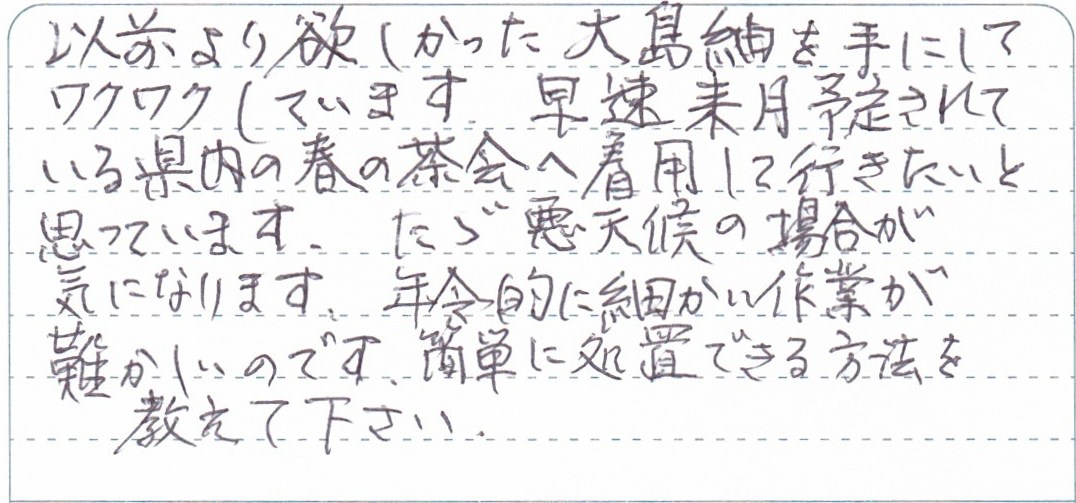 以前より欲しかった大島紬を手にして
ワクワクしています。早速来月予定されて
いる県内の春の茶会へ着用して行きたいと
思っています。たゞ悪天候の場合が
気になります。年令的に細かい作業が
難かしいのです。簡単に処置できる方法を
教えて下さい。